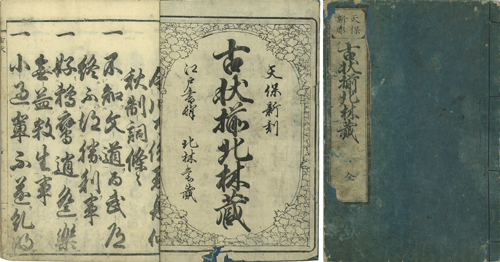 天保
新彫
古状揃北林蔵
全
天保新刻
古状揃北林蔵
江戸書肆 北林堂蔵
秋制詞條々
一 不知文道而武道
終不得勝利事
一 好鵜鷹逍遥樂
無益殺生事
一 小過輩不遂糺明